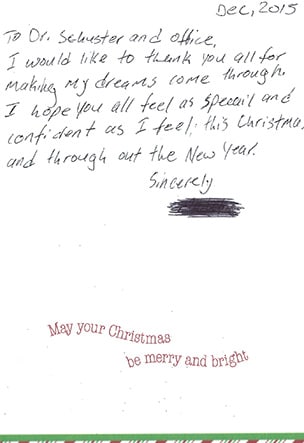 Dec, 2015
To Dr. Schuster and office,
I would like to thank you all for
making my dreams come through.
I hope you all feel as specail and
confident as I feel; this Christmas,
and through out the New Year.
Sincerely
May your Christmas
be merry and bright